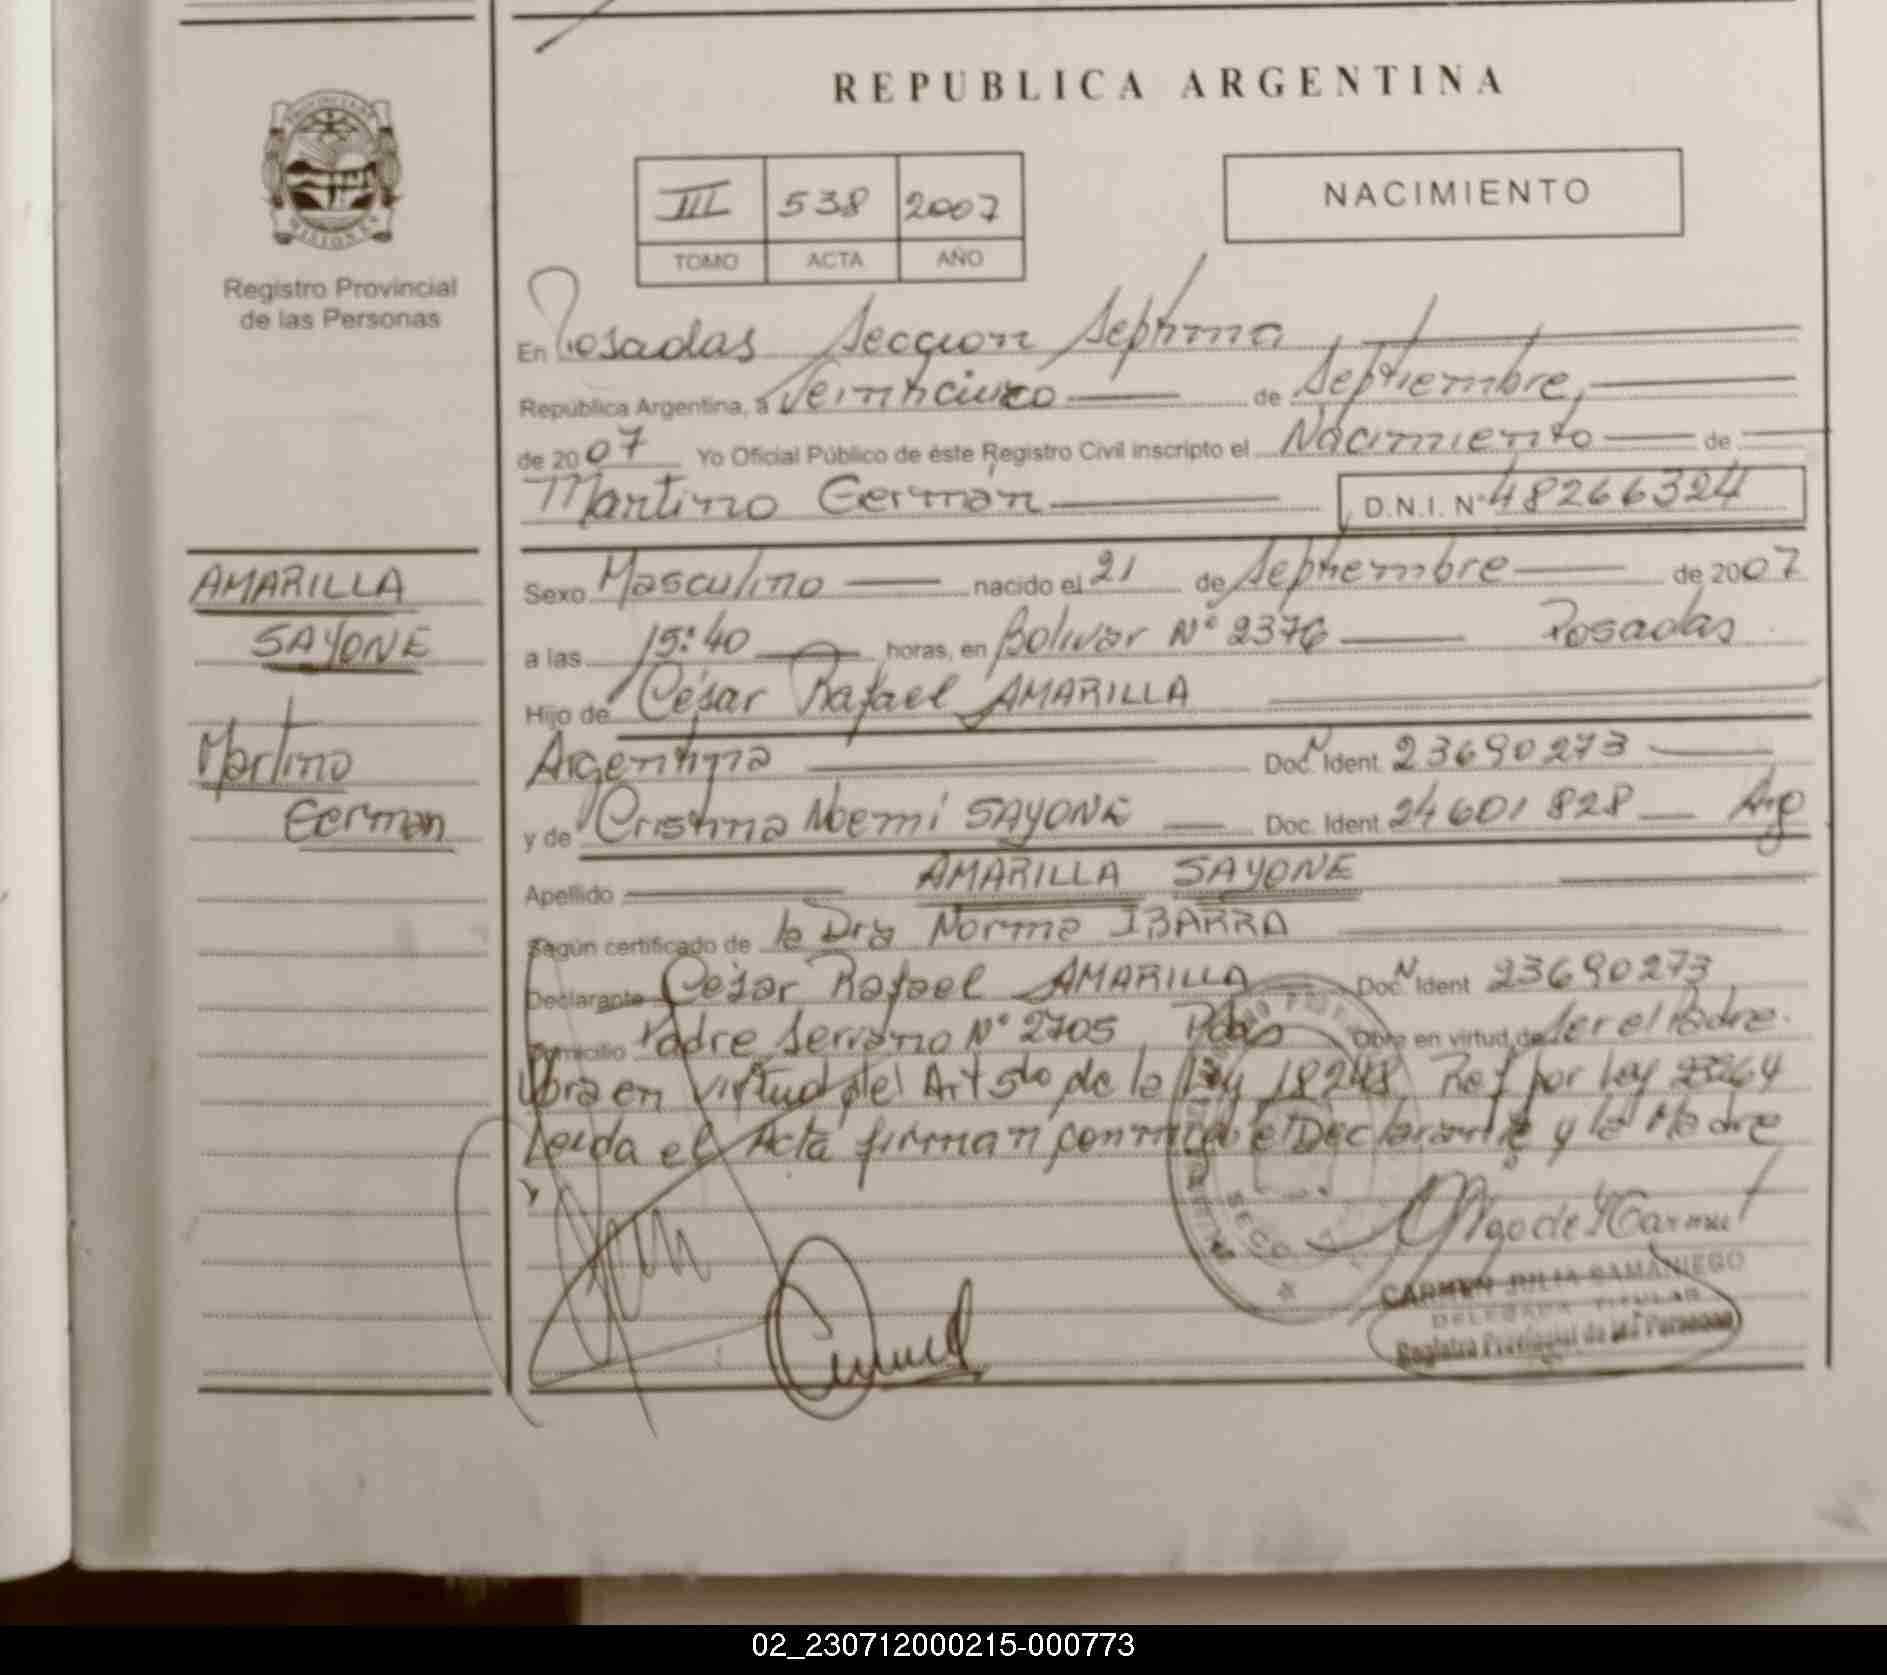 REPUBLICA ARGENTINA
III 538 2007
TOMO ACTA AÑO
NACIMIENTO
MISIONES
Registro Provincial
de las Personas
En Posadas Sección Séptima
República Argentina, a Veinticinco de Septiembre,
de 2007 Yo Oficial Público de éste Registro Civil inscripto el Nacimiento de
Martino Germán D.N.I. Nº 48266324
AMARILLA
SAYONE
Martino
German
Sexo Masculino nacido el 21 de Septiembre de 2007
a las 15:40 horas, en Bolivar Nº 2376 Posadas
Hijo de César Rafael AMARILLA
Argentina Doc. N Ident 23690273
y de Cristina Noemí SAYONE Doc. Ident 24601828 Arg
Apellido AMARILLA SAYONE
Según certificado de la Dra Norma IBARRA
Declarante César Rafael AMARILLA Doc. N Ident 23690273
Domicilio Padre Serrano Nº 2705 Pdas Obra en virtud de ser el Padre.
Obra en virtud del Art 5to de la Ley 18248 Ref por ley 23264
Leída el Acta firman conmigo el Declarante y la Madre
CARMEN JULIA SAMANIEGO
DELEGADA TITULAR
Registro Provincial de las Personas
02_230712000215-000773